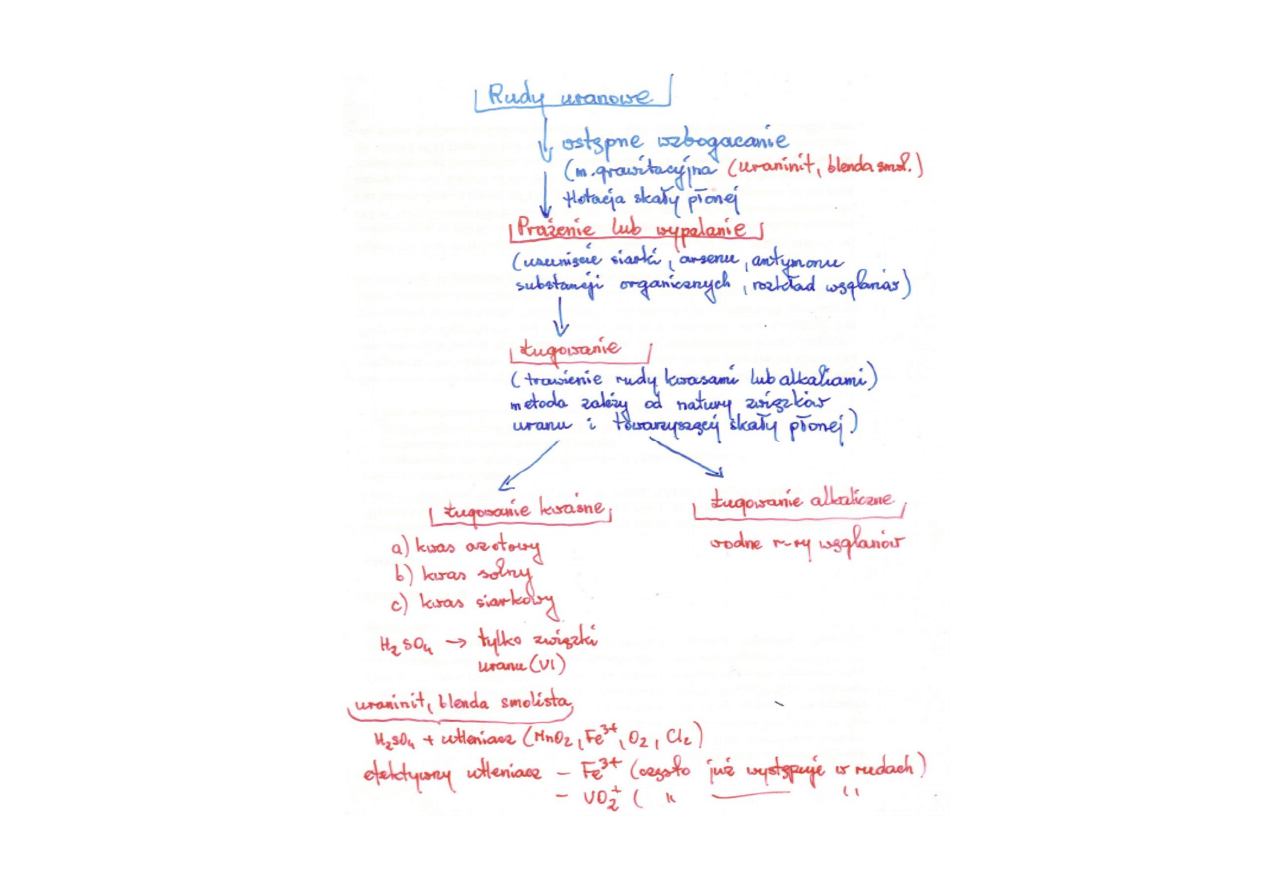 Rudy uranowe
wstępne wzbogacanie
(m. grawitacyjna (uraninit, blenda smol.)
flotacja skały płonej
Prażenie lub wypalanie
(usunięcie siarki, arsenu, antymonu
substancji organicznych, rozkład węglanów)
Ługowanie
(trawienie rudy kwasami lub alkaliami)
metoda zależy od natury związków
uranu i towarzyszącej skały płonej)
Ługowanie kwaśne
a) kwas azotowy
b) kwas solny
c) kwas siarkowy
H₂SO₄ → tylko związki
uranu (VI)
uraninit, blenda smolista
H₂SO₄ + utleniacz (MnO₂, Fe³⁺, O₂, Cl₂)
efektywny utleniacz – Fe³⁺ (często już występuje w rudach)
– VO₂⁺ ( " —— "
Ługowanie alkaliczne
wodne r-ry węglanów